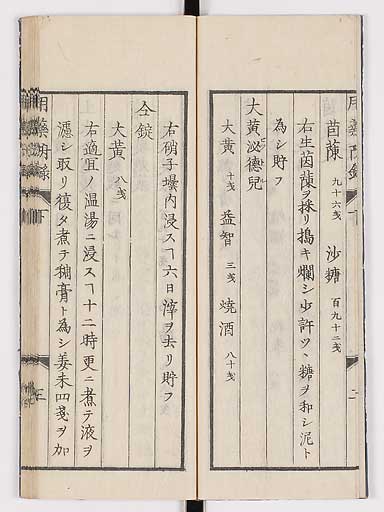 茴蔯 九十六戔 沙糖 百九十二戔
右生茵蔯ヲ採リ搗キ爛シ少許ツヽ糖ヲ和シ泥ト
為シ貯フ
大黄泌德兒
大黄 十戔 益智 三戔 焼酒 八十戔
右硝子壜内浸スヿ六日滓ヲ去リ貯フ
仝錠
大黄 八戔
右適宜ノ温湯ニ浸スヿ十二時更ニ煮テ液ヲ
濾シ取リ復タ煮テ稠膏ト為シ姜末四戔ヲ加